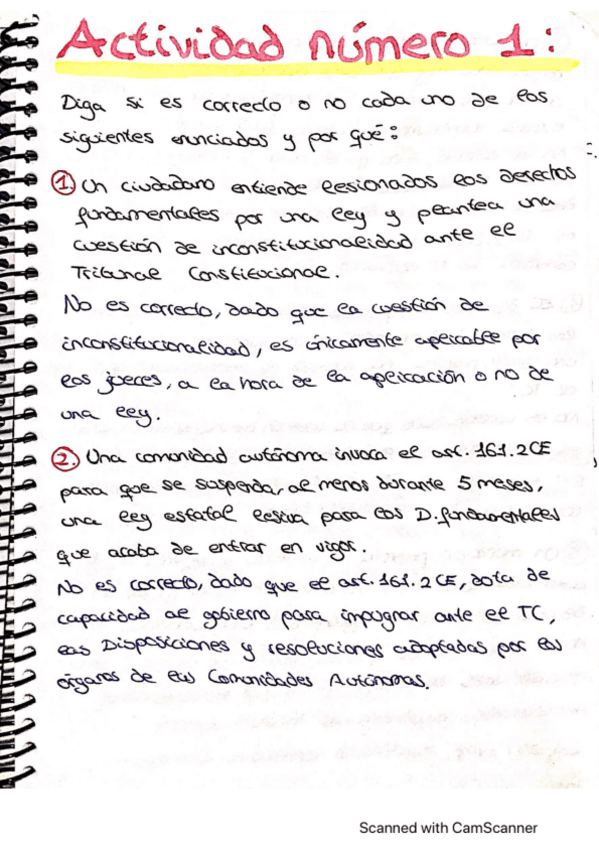 Actividad número 1:
Diga si es correcto o no cada uno de los
siguientes enunciados y por qué:
1. Un ciudadano entiende lesionados los derechos
fundamentales por una ley y plantea una
cuestión de inconstitucionalidad ante el
Tribunal Constitucional.
No es correcto, dado que la cuestión de
inconstitucionalidad, es únicamente aplicable por
los jueces, a la hora de la aplicación o no de
una ley.
2. Una comunidad autónoma invoca el art. 161.2CE
para que se suspenda, al menos durante 5 meses,
una ley estatal lesiva para los D. fundamentales
que acaba de entrar en vigor.
No es correcto, dado que el art. 161.2 CE, dota de
capacidad al gobierno para impugnar ante el TC,
las Disposiciones y resoluciones adoptadas por los
órganos de las Comunidades Autónomas.
Scanned with CamScanner